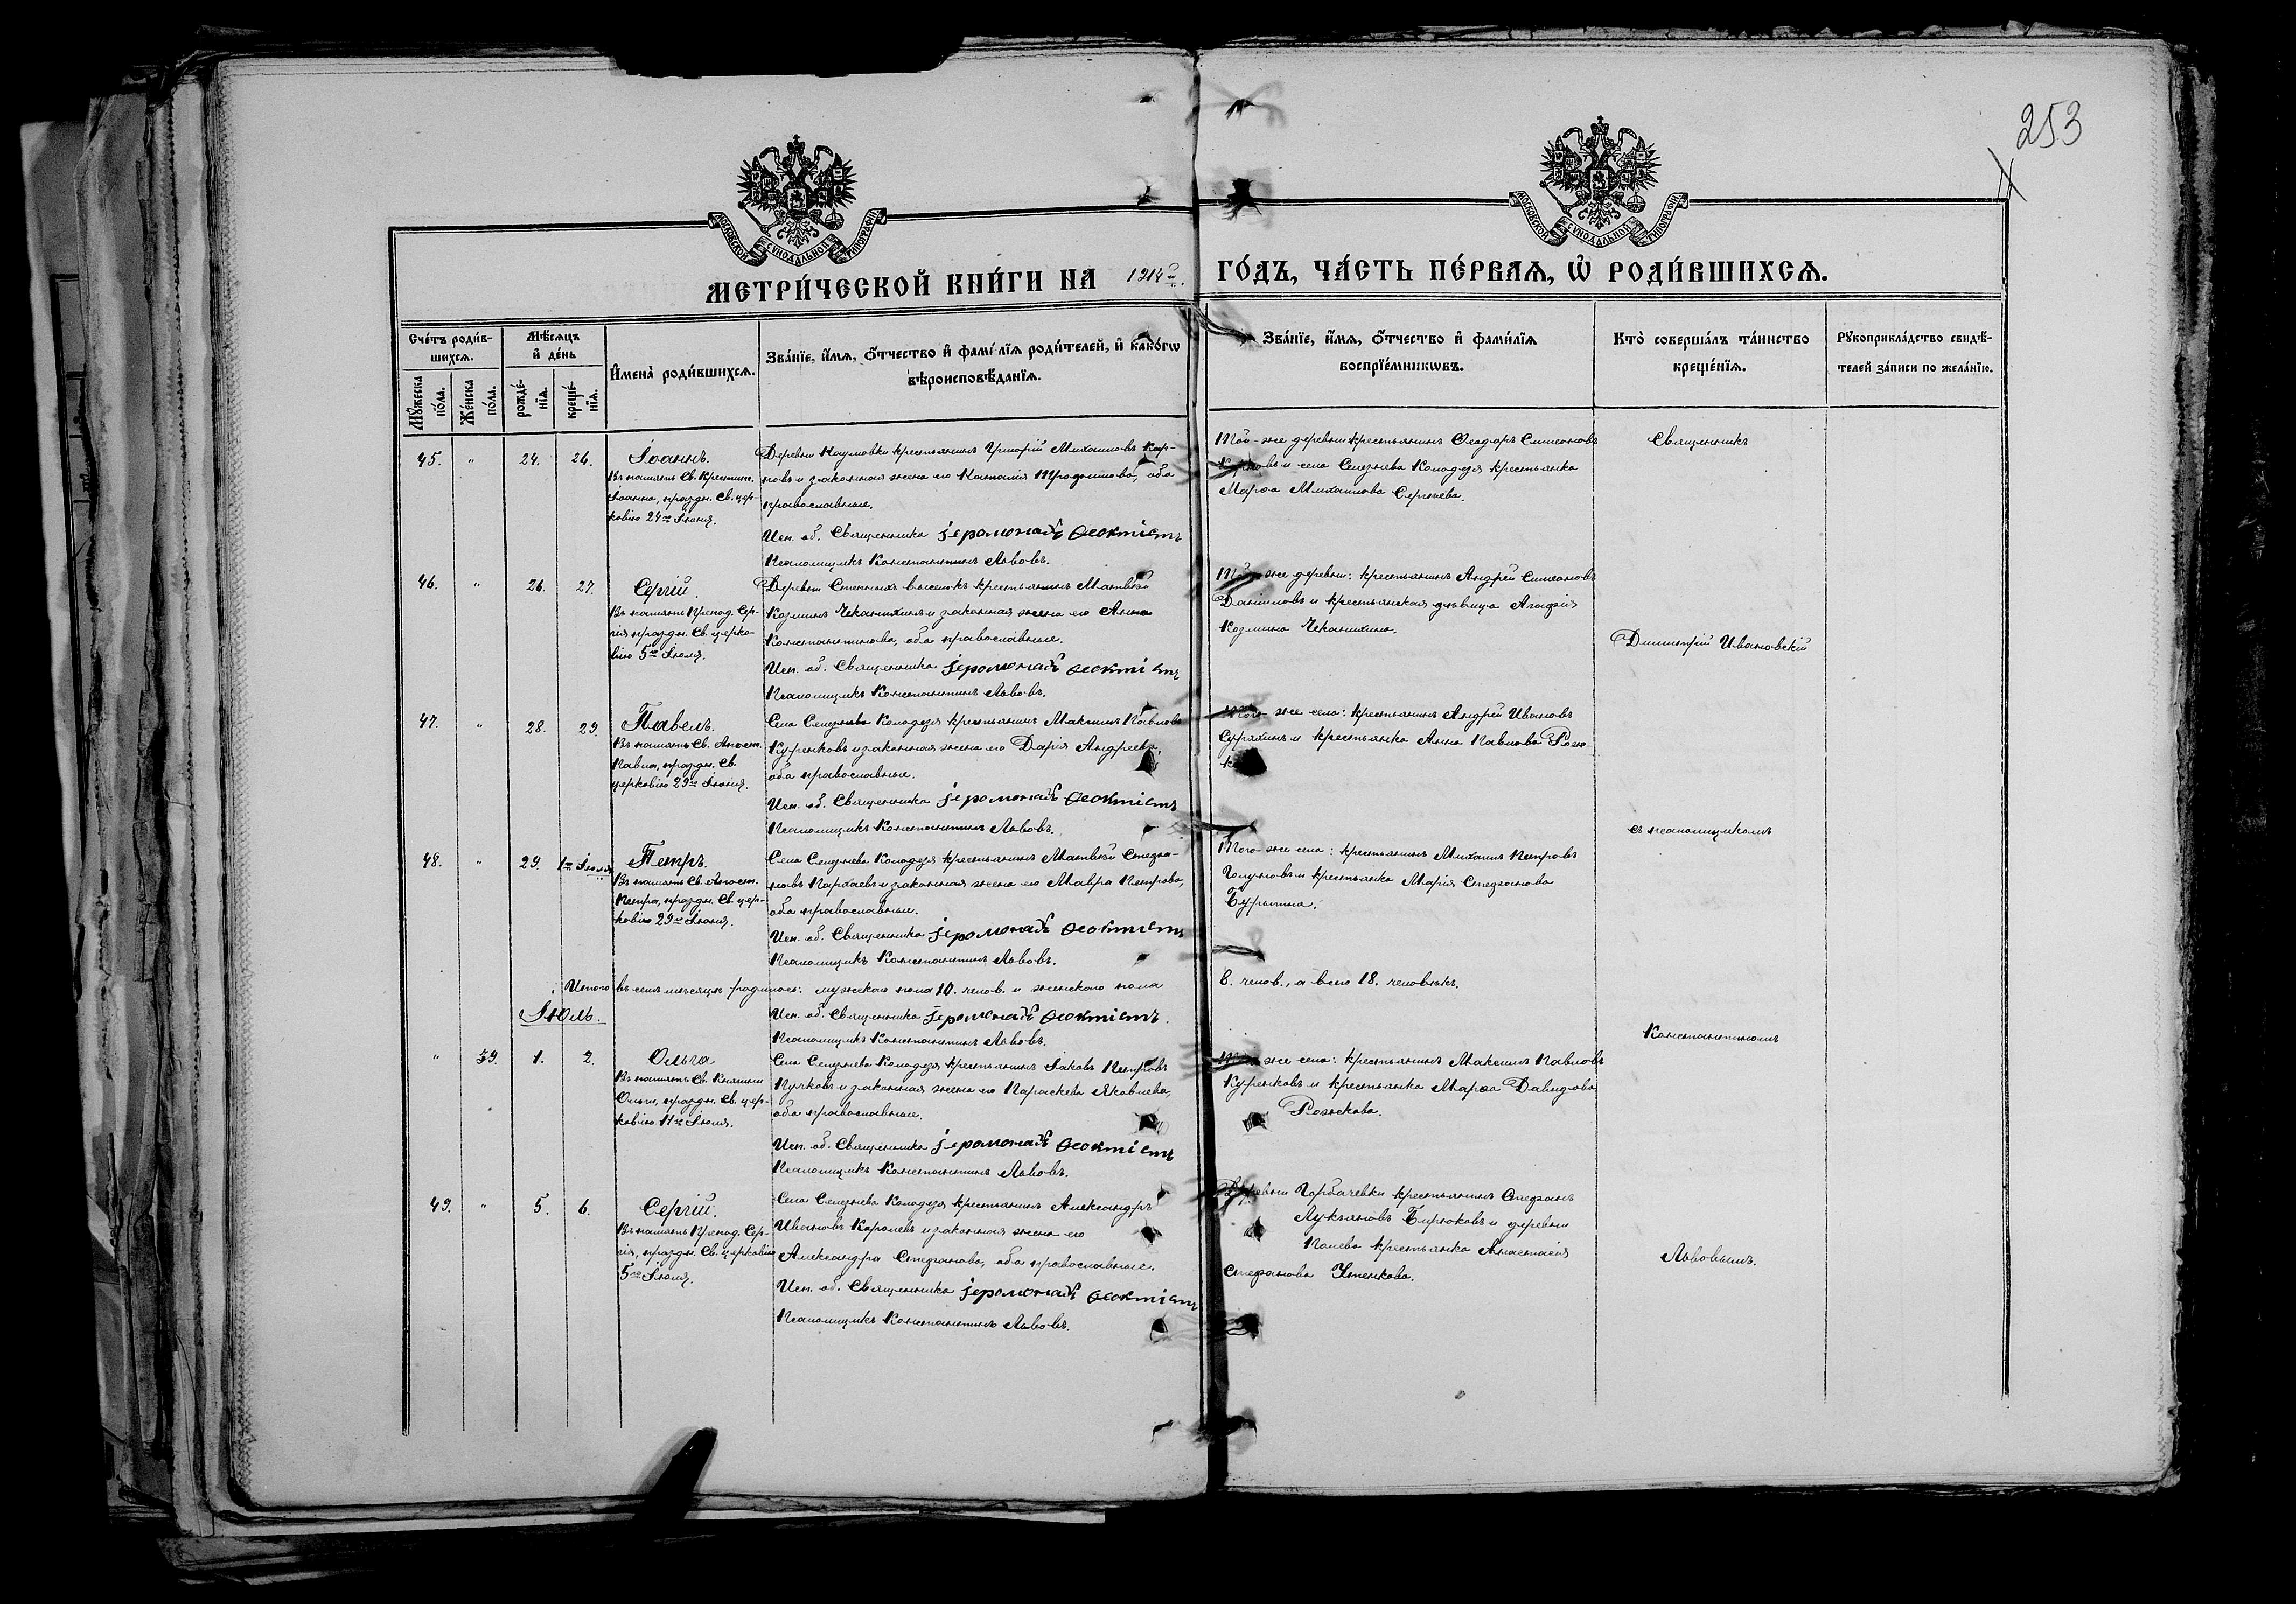 253
МОСКОВСКОЙ СѴНОДАЛЬНОЙ ТИПОГРАФІИ
МОСКОВСКОЙ СѴНОДАЛЬНОЙ ТИПОГРАФІИ
МЕТРИ́ЧЕСКОЙ КНИ́ГИ НА 1914 й. ГО́ДЪ, ЧА́СТЬ ПЕ́РВАѦ, Ѽ РОДИ́ВШИХСѦ.
Сче́тъ роди́в-
шихсѧ.
Мѣ́сѧцъ
и҆ де́нь
Мꙋ́жеска по́ла.
Же́нска по́ла.
рожде́-
нїѧ.
креще́-
нїѧ.
И҆мена̀ роди́вшихсѧ.
Зва́нїе, и҆́мѧ, ѻ҆́тчество и҆ фамѝлїѧ роди́телей, и҆ како́гѡ
вѣроисповѣ́данїѧ.
Зва́нїе, и҆́мѧ, ѻ҆́тчество и҆ фами́лїѧ
воспрїе́мникѡвъ.
Кто̀ соверша́лъ та́инство
креще́нїѧ.
Рꙋкоприкла́дство свидѣ́-
телей за́писи по жела́нїю.
45. " 24. 26. Іоаннъ.
Въ память Св. Крестит.
Іоанна, праздн. Св. цер-
ковію 24го Іюня.
Деревни Наумовки крестьянинъ Григорій Михаиловъ Кар-
повъ и законная жена его Наталія Трофимова, оба
православные.
Исп. об. Священника іеромонахъ Ѳеоктистъ
Псаломщикъ Константинъ Львовъ.
Той-же деревни крестьянинъ Ѳеодоръ Симеоновъ
Карповъ и села Селезнева Колодезя крестьянка
Марѳа Михаилова Сергѣева.
Священникъ
46. " 26. 27. Сергій.
Въ память Препод. Сер-
гія праздн. Св. церко-
вію 5го Іюля.
Деревни Степныхъ выселокъ крестьянинъ Матвѣй
Козминъ Чеканихинъ и законная жена его Анна
Константинова, оба православные.
Исп. об. Священника іеромонахъ Ѳеоктистъ
Псаломщикъ Константинъ Львовъ.
Той же деревни: крестьянинъ Андрей Симеоновъ
Даніиловъ и крестьянская дѣвица Агафія
Козмина Чеканихина.
Димитрій Ивановскій
47. " 28. 29. Павелъ.
Въ память Св. Апост.
Павла, праздн. Св.
церковію 29го Іюня.
Села Селезнева Колодезя крестьянинъ Максимъ Павловъ
Куренковъ и законная жена его Дарія Андреева,
оба православные.
Исп. об. Священника іеромонахъ Ѳеоктистъ
Псаломщикъ Константинъ Львовъ.
Того-же села: крестьянинъ Андрей Ивановъ
и крестьянка Анна Павлова
съ псаломщикомъ
48. " 29. 1го Іюля Петръ.
Въ память Св. Апост.
Петра, праздн. Св. цер-
ковію 29го Іюня.
Села Селезнева Колодезя крестьянинъ Матвѣй Стефа-
новъ Пархаевъ и законная жена его Мавра Петрова,
оба православные.
Исп. об. Священника іеромонахъ Ѳеоктистъ
Псаломщикъ Константинъ Львовъ.
Того-же села: крестьянинъ Михаилъ Петровъ
и крестьянка Марія Стефанова
Итого въ семъ мѣсяцѣ родилось: мужскаго пола 10. челов. и женскаго пола 8. челов., а всего 18. человѣкъ.
Іюль.
Исп. об. Священника іеромонахъ Ѳеоктистъ.
Псаломщикъ Константинъ Львовъ.
Константиномъ
" 39. 1. 2. Ольга
Въ память Св. Княгини
Ольги, праздн. Св. цер-
ковію 11го Іюля.
Села Селезнева Колодезя крестьянинъ Іаковъ Петровъ
Пучковъ и законная жена его Параскева Яковлева,
оба православные.
Исп. об. Священника іеромонахъ Ѳеоктистъ
Псаломщикъ Константинъ Львовъ.
же села: крестьянинъ Максимъ Павловъ
Куренковъ и крестьянка Марѳа Давидова
Рожкова.
49. " 5. 6. Сергій.
Въ память Препод. Сер-
гія, праздн. Св. церковію
5го Іюля.
Села Селезнева Колодезя крестьянинъ Александръ
Ивановъ Королевъ и законная жена его
Александра Стефанова, оба православные.
Исп. об. Священника іеромонахъ Ѳеоктистъ
Псаломщикъ Константинъ Львовъ.
Деревни Горбачевки крестьянинъ Стефанъ
Лукьяновъ Бирюковъ и деревни
Панева крестьянка Анастасія
Стефанова Утенкова.
Львовымъ.